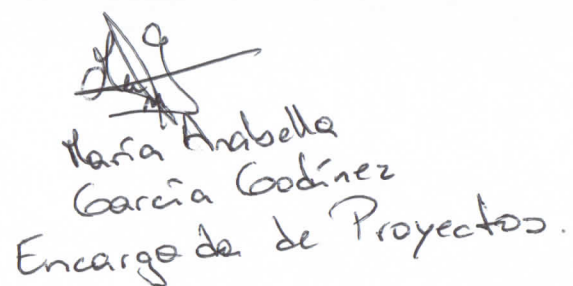 María Anabella
García Godínez
Encargada de Proyectos.